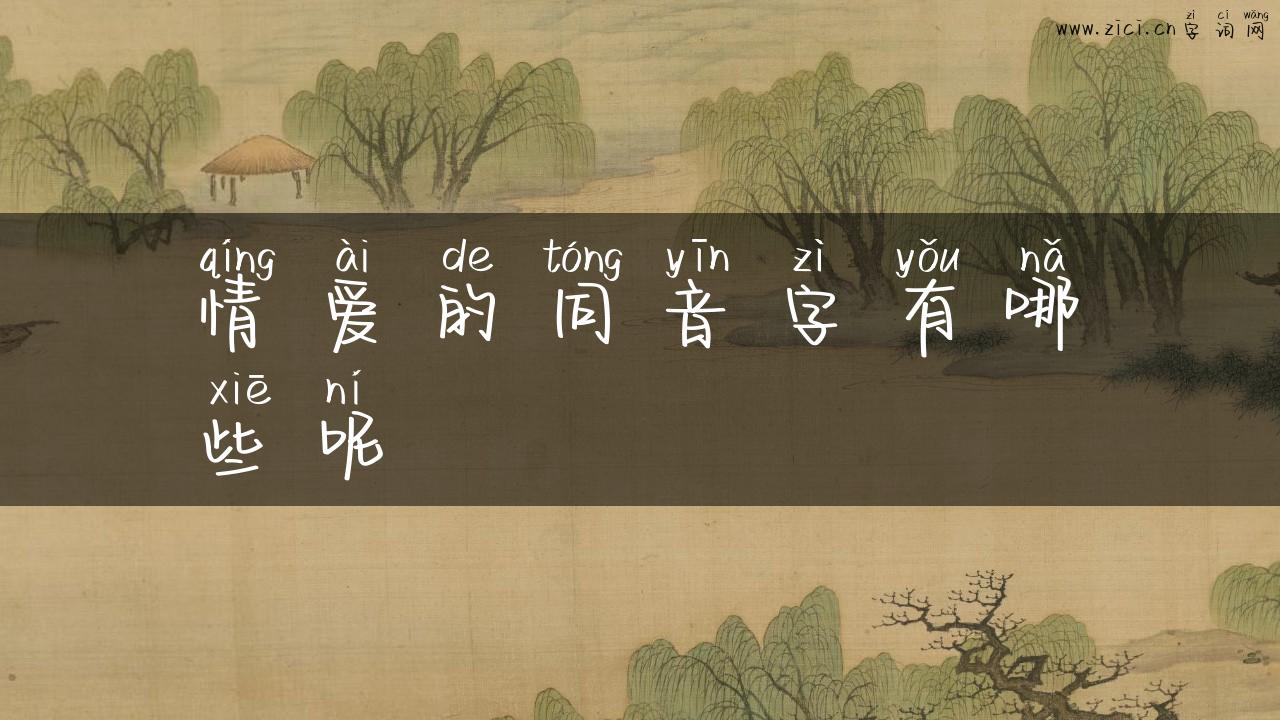 zì cí wǎng
www.zici.cn 字 词 网
qíng ài de tóng yīn zì yǒu nǎ
情 爱 的 同 音 字 有 哪
xiē ní
些 呢